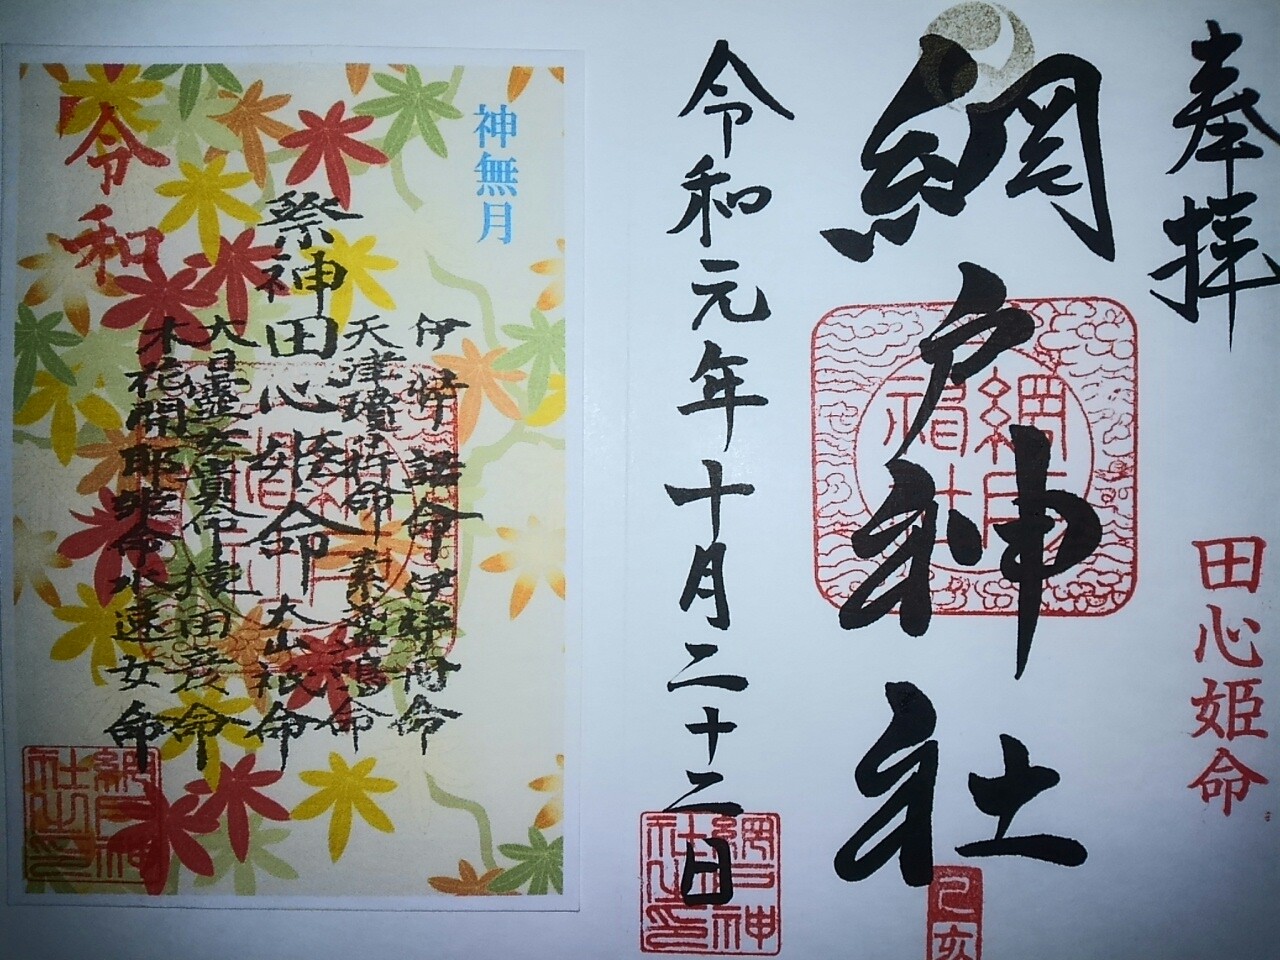 奉拝
田心姫命
網戸神社
網戸神社
己亥
令和元年十月二十二日
網戸神社之印
神無月
伊弉諾命 伊弉冉命
天津彦命 素盞嗚命
祭神
田心姫命 大山祇命
大日霊女貴命 猿田彦命
木花開耶姫命 水速女命
令和
網戸神社之印